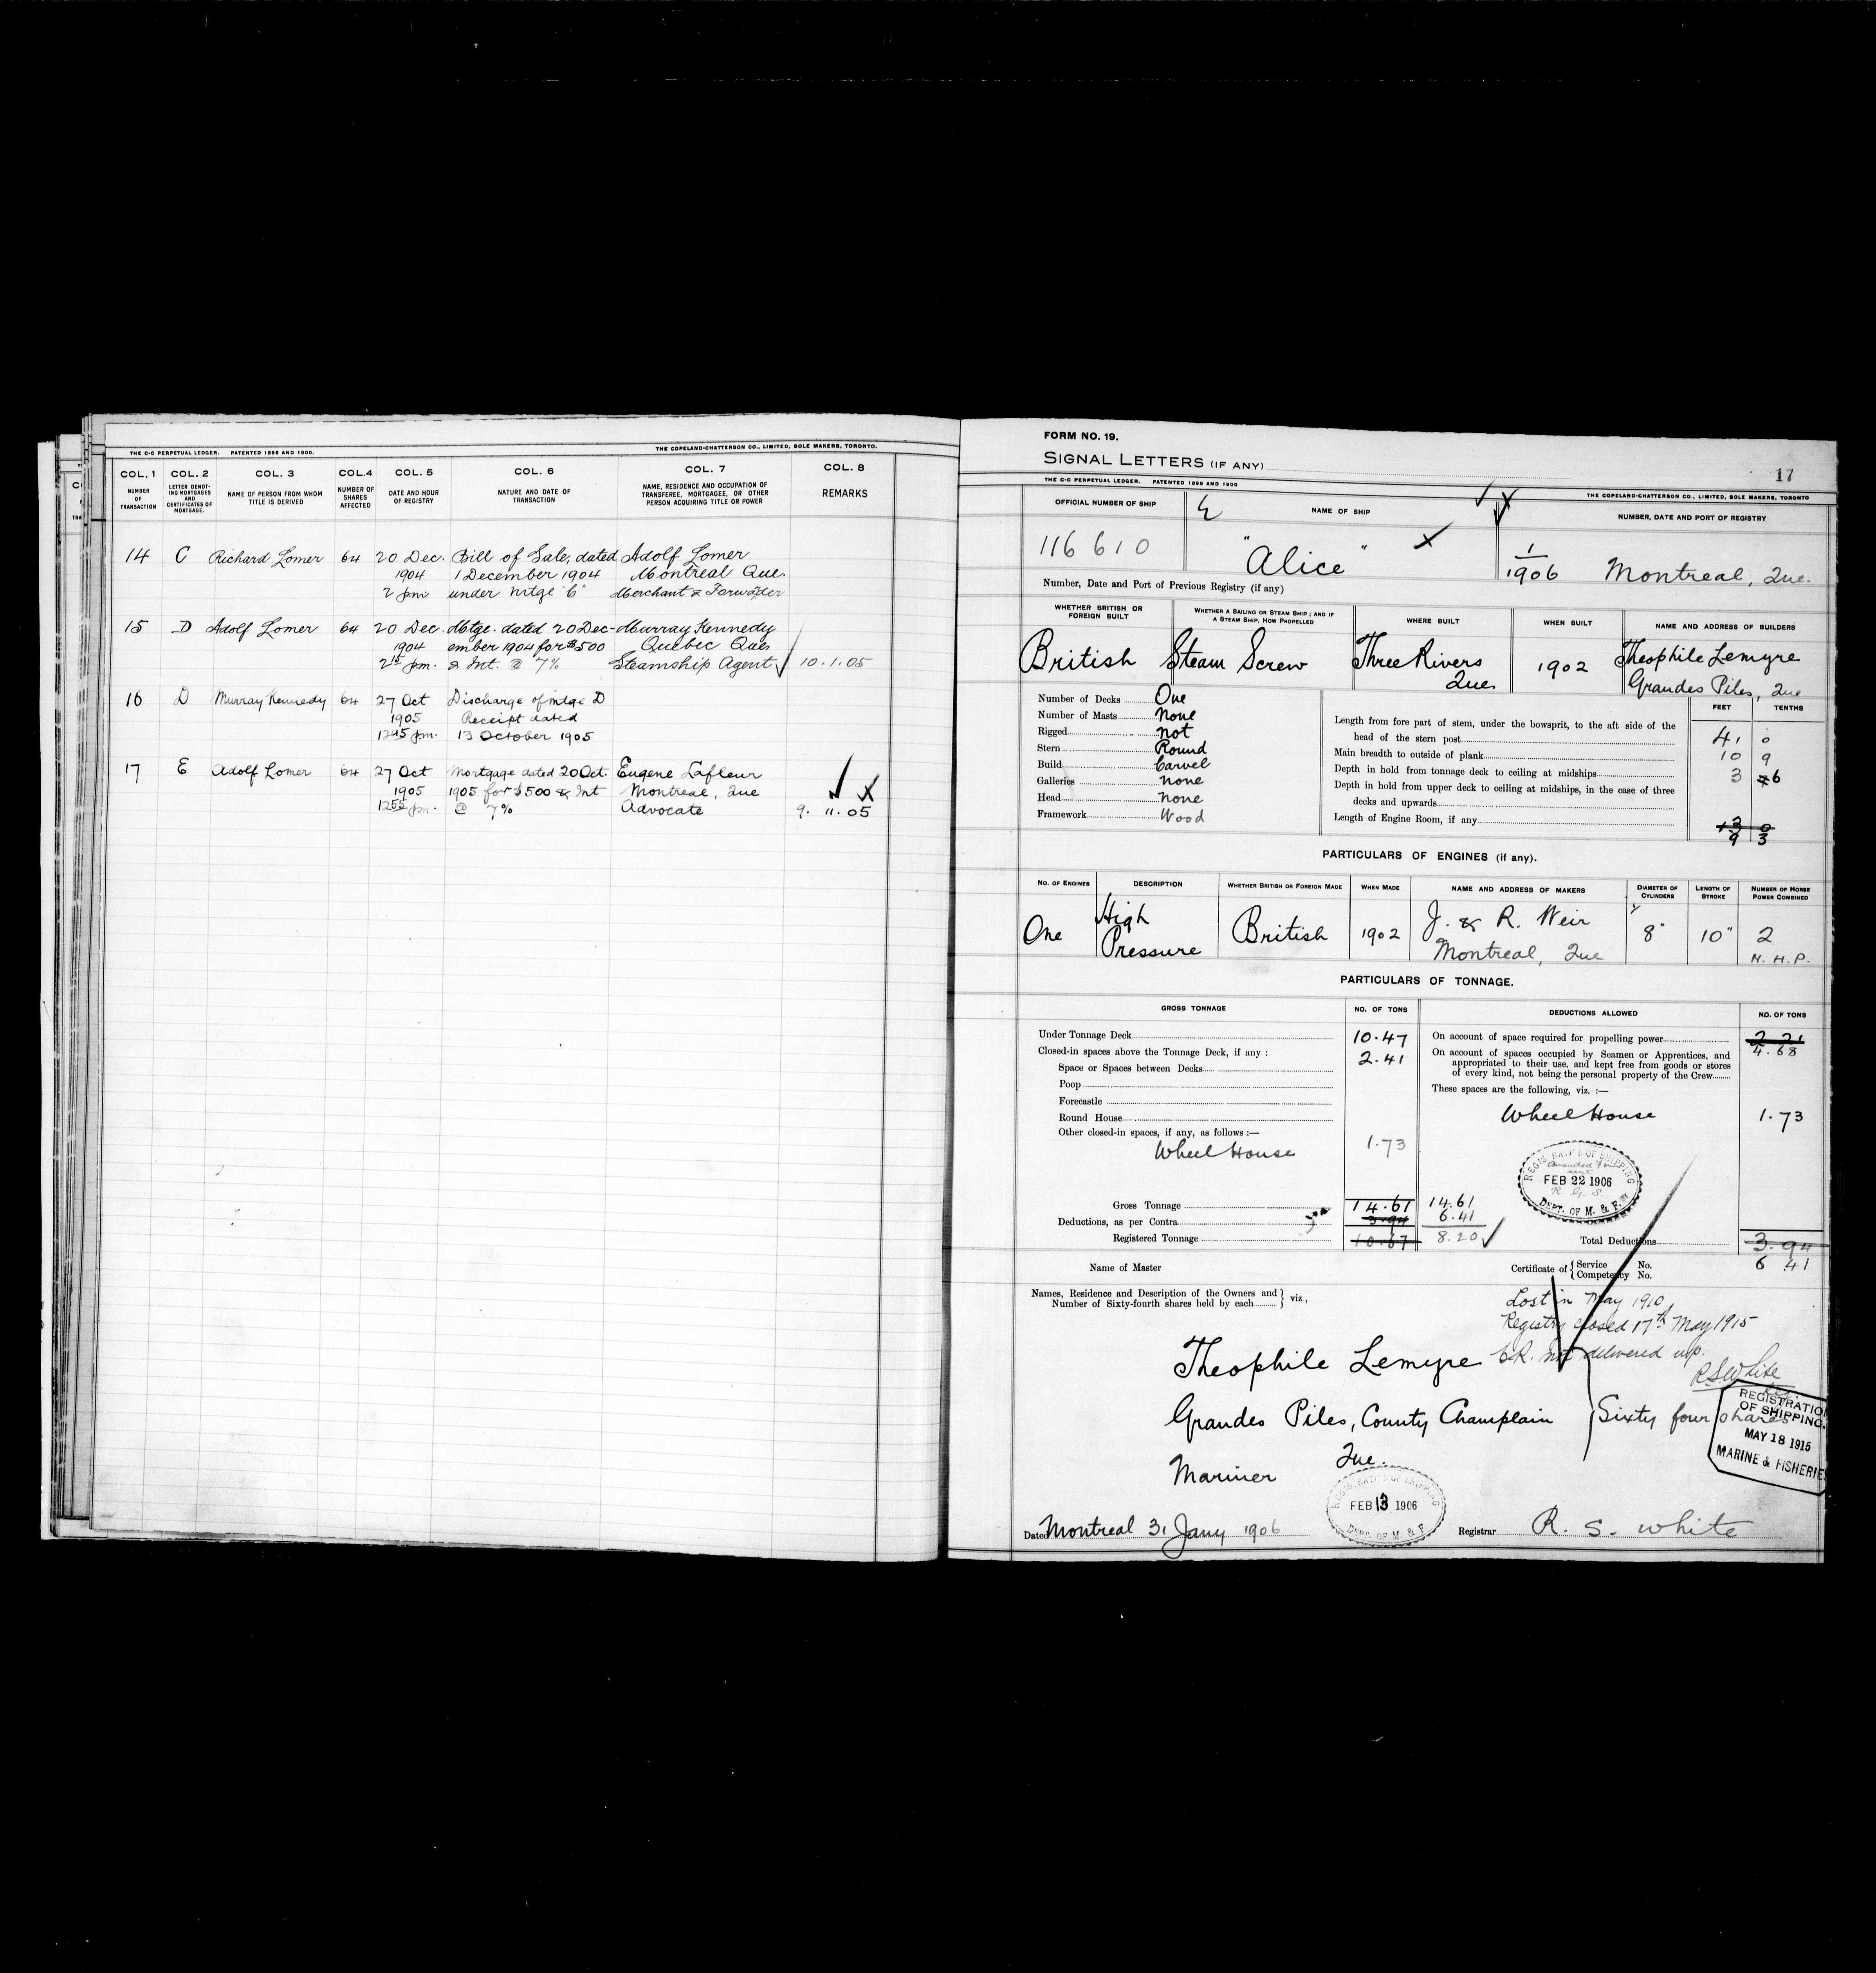 THE C-C PERPETUAL LEDGER. PATENTED 1896 AND 1900. THE COPELAND-CHATTERSON CO., LIMITED, SOLE MAKERS, TORONTO.
COL. 1 COL. 2 COL. 3 COL. 4 COL. 5 COL. 6 COL. 7 COL. 8
NUMBER OF TRANSACTION
LETTER DENOTING MORTGAGES AND CERTIFICATES OF MORTGAGE.
NAME OF PERSON FROM WHOM TITLE IS DERIVED
NUMBER OF SHARES AFFECTED
DATE AND HOUR OF REGISTRY
NATURE AND DATE OF TRANSACTION
NAME, RESIDENCE AND OCCUPATION OF TRANSFEREE, MORTGAGEE, OR OTHER PERSON ACQUIRING TITLE OR POWER
REMARKS
14 C Richard Lomer 64 20 Dec. Bill of Sale, dated Adolf Lomer
1904 1 December 1904 Montreal Que.
2 pm under mtge "C" Merchant & Forwarder
15 D Adolf Lomer 64 20 Dec. Mtge. dated 20 Dec- Murray Kennedy
1904 ember 1904 for $500 Quebec Que
2 15 pm. & Int. @ 7% Steamship Agent 10.1.05
16 D Murray Kennedy 64 27 Oct Discharge of mtge D
1905 Receipt dated
12 45 pm. 13 October 1905
17 E Adolf Lomer 64 27 Oct Mortgage dated 20 Oct. Eugene Lafleur
1905 1905 for $500 & Int Montreal, Que
12 55 pm. @ 7% Advocate 9. 11. 05
FORM NO. 19.
SIGNAL LETTERS (IF ANY)
17
THE C-C PERPETUAL LEDGER. PATENTED 1896 AND 1900 THE COPELAND-CHATTERSON CO., LIMITED, SOLE MAKERS, TORONTO
OFFICIAL NUMBER OF SHIP NAME OF SHIP NUMBER, DATE AND PORT OF REGISTRY
116610 "Alice" 1/1906 Montreal, Que.
Number, Date and Port of Previous Registry (if any)
WHETHER BRITISH OR FOREIGN BUILT
WHETHER A SAILING OR STEAM SHIP; AND IF A STEAM SHIP, HOW PROPELLED
WHERE BUILT
WHEN BUILT
NAME AND ADDRESS OF BUILDERS
British Steam Screw Three Rivers Que. 1902 Theophile Lemyre
Grandes Piles, Que
FEET TENTHS
Number of Decks One
Number of Masts None
Rigged not
Stern Round
Build Carvel
Galleries none
Head none
Framework Wood
Length from fore part of stem, under the bowsprit, to the aft side of the
head of the stern post 41 0
Main breadth to outside of plank 10 9
Depth in hold from tonnage deck to ceiling at midships 3 6
Depth in hold from upper deck to ceiling at midships, in the case of three
decks and upwards
Length of Engine Room, if any 13 0
9 3
PARTICULARS OF ENGINES (if any).
NO. OF ENGINES DESCRIPTION WHETHER BRITISH OR FOREIGN MADE WHEN MADE NAME AND ADDRESS OF MAKERS DIAMETER OF CYLINDERS LENGTH OF STROKE NUMBER OF HORSE POWER COMBINED
One High Pressure British 1902 J. & R. Weir 8" 10" 2
Montreal, Que N. H. P.
PARTICULARS OF TONNAGE.
GROSS TONNAGE NO. OF TONS DEDUCTIONS ALLOWED NO. OF TONS
Under Tonnage Deck 10.47
Closed-in spaces above the Tonnage Deck, if any : 2.41
Space or Spaces between Decks
Poop
Forecastle
Round House
Other closed-in spaces, if any, as follows :—
Wheel House 1.73
Gross Tonnage 14.61 14.61
Deductions, as per Contra 3.94 6.41
Registered Tonnage 10.67 8.20
On account of space required for propelling power 2.21
4.68
On account of spaces occupied by Seamen or Apprentices, and
appropriated to their use, and kept free from goods or stores
of every kind, not being the personal property of the Crew
These spaces are the following, viz. :—
Wheel House 1.73
REGISTRATION OF SHIPPING
FEB 22 1906
R. G. S.
DEPT. OF M. & F.
Total Deductions 3.94
6 41
Name of Master
Certificate of { Service No.
Competency No.
Names, Residence and Description of the Owners and
Number of Sixty-fourth shares held by each } viz,
Lost in May 1910
Registry closed 17th May 1915
C.R. not delivered up.
R.S. White
Theophile Lemyre
Grandes Piles, County Champlain Sixty four shares
Que.
Mariner
REGISTRATION OF SHIPPING.
MAY 18 1915
MARINE & FISHERIE
REGISTRATION OF SHIPPING
FEB 13 1906
DEPT. OF M. & F.
Dated Montreal 31 Jany 1906 Registrar R. S. White